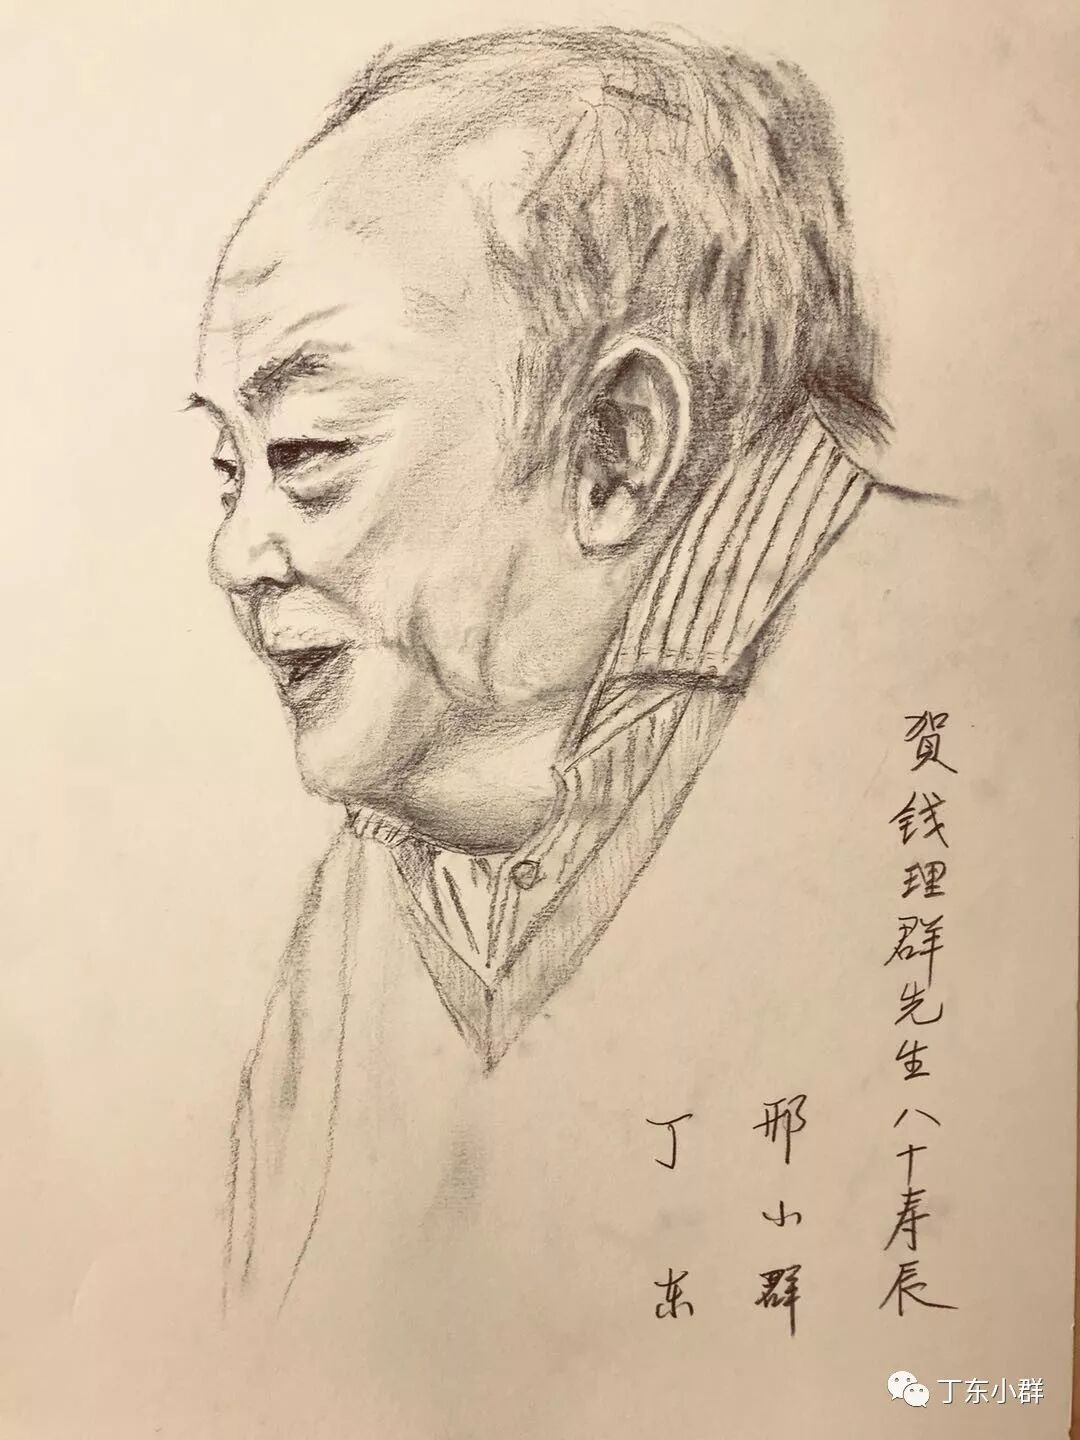 賀钱理群先生八十寿辰
邢小群
丁东
丁东小群